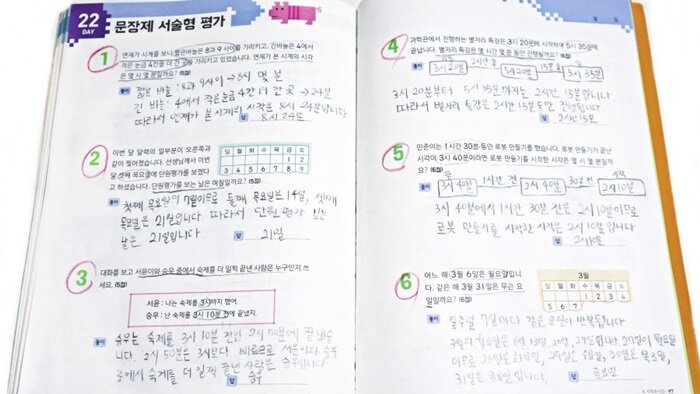 22
DAY
문장제 서술형 평가
1
연재가 시계를 보니 짧은바늘은 8과 9 사이를 가리키고, 긴바늘은 4에서
작은 눈금 4칸을 더 간 곳을 가리키고 있었습니다. 연재가 본 시계의 시각
은 몇 시 몇 분일까요? (5점)
풀이 짧은 바늘: 8과 9사이→8시 몇 분
긴 바늘: 4에서 작은눈금 4칸 더 간 곳→24분
따라서 연재가 본 시계의 시각은 8시 24분입니다
답 8시 24분
2
이번 달 달력의 일부분이 오른쪽과
같이 찢어졌습니다. 선생님께서 이번
달 셋째 목요일에 단원평가를 보겠다
고 하셨습니다. 단원평가를 보는 날은 며칠일까요? (5점)
일 월 화 수 목 금 토
1 2
3 4 5 6 7 8 9
풀이 첫째 목요일이 7일이므로 둘째 목요일은 14일, 셋째
목요일은 21일입니다. 따라서 단원평가 보는
날은 21일입니다
답 21일
3
대화를 보고 서윤이와 승우 중에서 숙제를 더 일찍 끝낸 사람은 누구인지 쓰
세요. (5점)
서윤 : 나는 숙제를 3시까지 했어.
승우 : 난 숙제를 3시 10분 전에 끝냈지.
풀이 승우는 숙제를 3시 10분 전인 2시 50분에 끝냈습
니다. 2시 50분은 3시보다 빠르므로 서윤이와 승우
중에서 숙제를 더 일찍 끝낸 사람은 승우입니다
답 승우
4
과학관에서 진행하는 별자리 특강은 3시 20분에 시작하여 5시 35분에
끝납니다. 별자리 특강은 몇 시간 몇 분 동안 진행될까요? (6점)
풀이 3시 20분 2시간 후 5시 20분 15분 후 5시 35분
3시 20분부터 5시 35분까지는 2시간 15분입니다
따라서 별자리 특강은 2시간 15분 동안 진행됩니다
답 2시간 15분
5
민준이는 1시간 30분 동안 로봇 만들기를 했습니다. 로봇 만들기가 끝난
시각이 3시 40분이라면 로봇 만들기를 시작한 시각은 몇 시 몇 분일까
요? (6점)
풀이 3시 40분 1시간 전 2시 40분 30분 전 2시 10분
3시 40분에서 1시간 30분 전은 2시 10분이므로
로봇 만들기를 시작한 시각은 2시 10분입니다.
답 2시 10분
6
어느 해 3월 6일은 월요일입니
다. 같은 해 3월 31일은 무슨 요
일일까요? (6점)
3월
일 월 화 수 목 금 토
1 2 3 4
5 6 7
풀이 일주일 7일마다 같은 요일이 반복됩니다
31일은 금요일입니다.
답 금요일